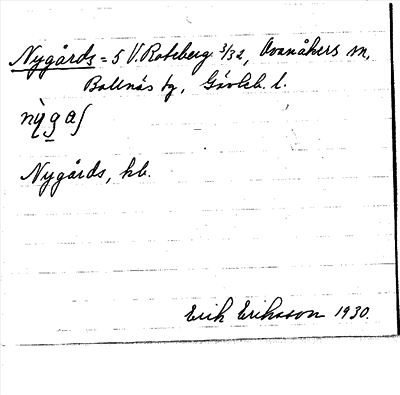 Nygårds = 5 V. Roteberg 3/32, Ovanåkers sn,
Bollnäs tg, Gävleb. l.
nỳgaʃ
Nygårds, kb.
Erik Eriksson 1930.